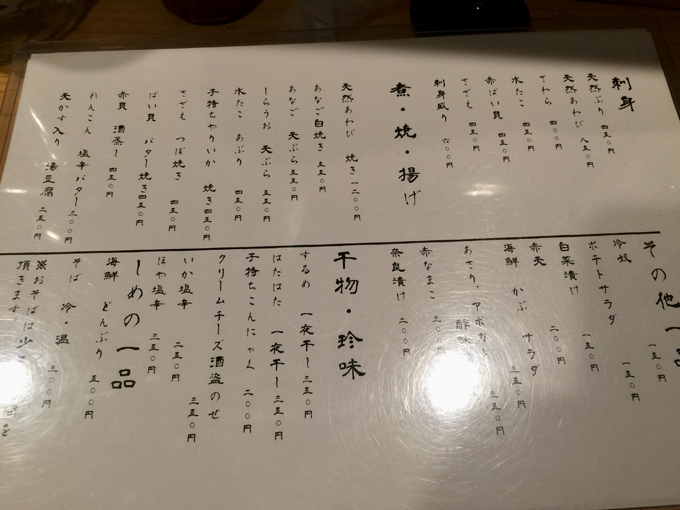 刺身
天然ぶり 四五〇円
天然あわび 八五〇円
さわら 四〇〇円
水たこ 四五〇円
赤ばい貝 四五〇円
さざえ 四五〇円
刺身盛り 六〇〇円
煮・焼・揚げ
天然あわび 焼き 一二〇〇円
あなご白焼き 五五〇円
あなご 天ぷら 五五〇円
しらうお 天ぷら 五五〇円
水たこ あぶり 四五〇円
子持ちやりいか 焼き 四五〇円
さざえ つぼ焼き 四五〇円
ばい貝 バター焼き 四五〇円
赤貝 酒蒸し 四五〇円
れんこん 塩辛バター 三〇〇円
天かす入り 湯豆腐 二五〇円
その他一品
冷奴 一五〇円
ポテトサラダ 一五〇円
白菜漬け 二〇〇円
赤天
海鮮 かぶ サラダ 三五〇円
あさり、アボカド 三五〇円
赤なまこ 三〇〇円
奈良漬け 二〇〇円
干物・珍味
するめ 一夜干し 三五〇円
はたはた 一夜干し 三五〇円
子持ちこんにゃく 二〇〇円
クリームチーズ酒盗のせ 三五〇円
いか塩辛 二五〇円
ほや塩辛 三五〇円
しめの一品
海鮮 どんぶり 五〇〇円
そば 冷・温 三〇〇円
※おそばは少
頂きます